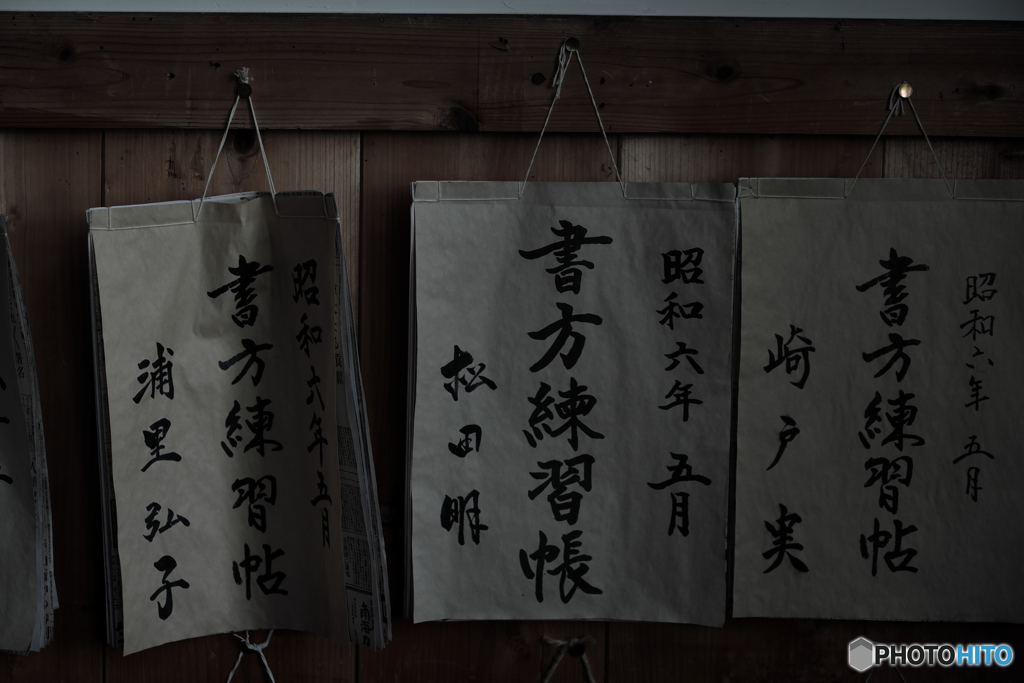 昭和六年五月
書方練習帖
崎戸実
昭和六年五月
書方練習帳
松田明
昭和六年五月
書方練習帖
浦里弘子
PHOTOHITO